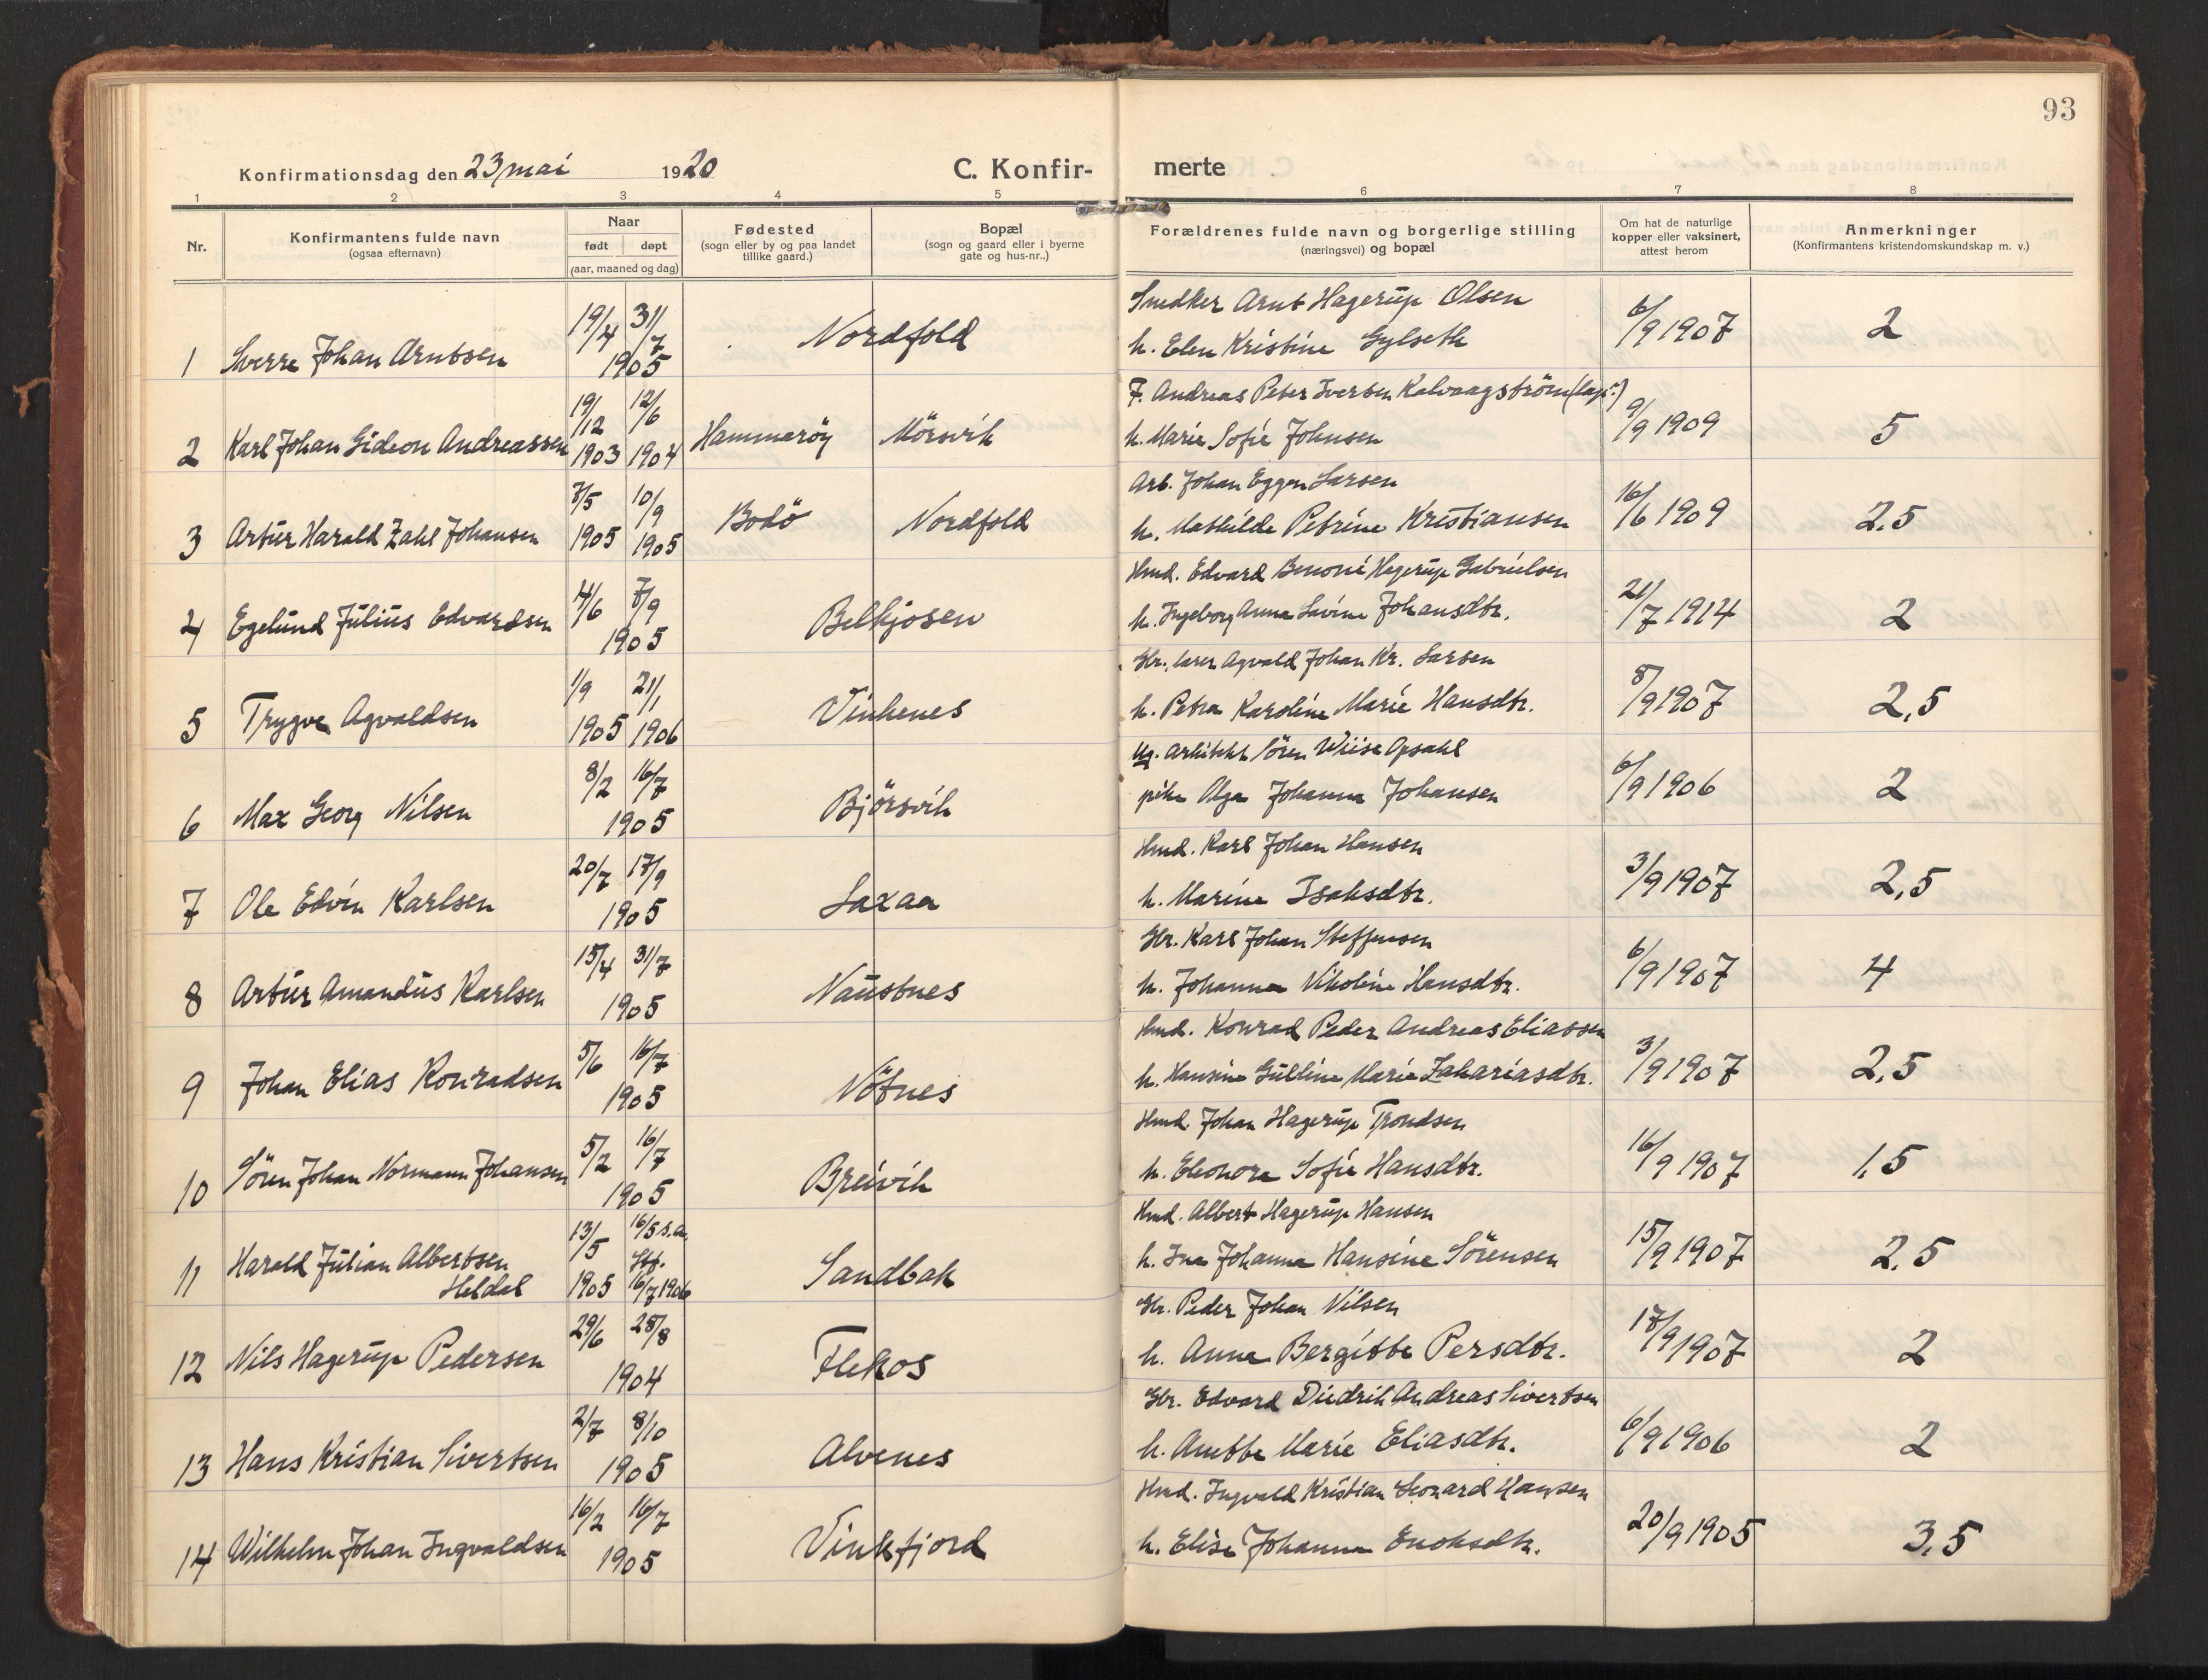 93
Konfirmationsdag den 23 mai 1920
C. Konfir- merte
1 2 3 4 5 6 7 8
Nr.
Konfirmantens fulde navn
(ogsaa efternavn)
Naar
født døpt
(aar, maaned og dag)
Fødested
(sogn eller by og paa landet
tillike gaard.)
Bopæl
(sogn og gaard eller i byerne
gate og hus-nr..)
Forældrenes fulde navn og borgerlige stilling
(næringsvei) og bopæl
Om hat de naturlige
kopper eller vaksinert,
attest herom
Anmerkninger
(Konfirmantens kristendomskundskap m. v.)
Snedker Arnt Hagerup Olsen
1 Sverre Johan Arntsen 19/4 31/7 1905 Nordfold h. Elen Kristine Gylseth 6/9 1907 2
F. Andreas Peter Iversen Kalvaagström
2 Karl Johan Gideon Andreassen 19/12 1903 12/6 1904 Hammaröy Mörsvik h. Marie Sofie Johnsen 9/9 1909 5
Arb. Johan Eggen Larsen
3 Artur Harald Zahl Johansen 7/5 1905 10/9 1905 Bodö Nordfold h. Mathilde Petrine Kristiansen 16/6 1909 2,5
Hmd. Edvard Benoni Hagerup Gabrielsen
4 Egelund Julius Edvardsen 4/6 7/9 1905 Belkjosen h. Ingeborg Anna Lavine Johansdtr. 21/7 1914 2
Gbr., lærer Agvald Johan Kr. Larsen
5 Trygve Agvaldsen 1/9 1905 21/1 1906 Vinkenes h. Petra Karoline Marie Hansdtr. 8/9 1907 2,5
Ug. arkitekt Sören Wiise Opsahl
6 Max Georg Nilsen 8/2 16/7 1905 Björsvik pike Olga Johanna Johansen 6/9 1906 2
Hmd. Karl Johan Hansen
7 Ole Edvin Karlsen 20/7 17/9 1905 Laxaa h. Marine Isaksdtr. 3/9 1907 2,5
Gbr. Karl Johan Steffensen
8 Artur Amandus Karlsen 15/4 31/7 1905 Naustnes h. Johanna Nikoline Hansdtr. 6/9 1907 4
Hmd. Konrad Peder Andreas Eliassen
9 Johan Elias Konradsen 5/6 16/7 1905 Nötnes h. Hansine Gulline Marie Zakariasdtr. 3/9 1907 2,5
Hmd. Johan Hagerup Trondsen
10 Sören Johan Normann Johansen 5/2 16/7 1905 Breivik h. Eleonora Sofie Hansdtr. 16/9 1907 1,5
Hmd. Albert Hagerup Hansen
11 Harald Julian Albertsen Heldal 13/5 1905 16/5 s.a. Stf. 16/7 1906 Sandbak h. Ina Johanna Hansine Sörensen 15/9 1907 2,5
Gbr. Peder Johan Nilsen
12 Nils Hagerup Pedersen 29/6 28/8 1904 Flekos h. Anna Bergitte Persdtr. 17/9 1907 2
Gbr. Edvard Diedrik Andreas Sivertsen
13 Hans Kristian Sivertsen 2/7 8/10 1905 Alvenes h. Anette Marie Eliasdtr. 6/9 1906 2
Hmd. Ingvald Kristian Leonard Hansen
14 Wilhelm Johan Ingvaldsen 16/2 16/7 1905 Vinkfjord h. Elise Johanna Enoksdtr. 20/9 1905 3,5